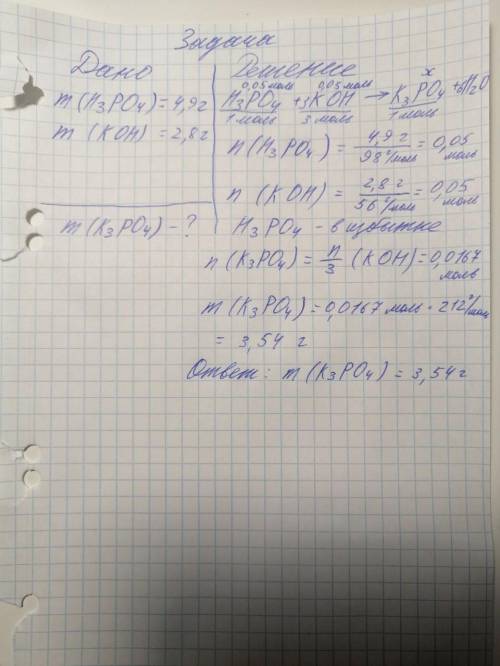 Задача
Дано
m (H₃PO₄) = 4,9 г
m (KOH) = 2,8 г
m (K₃PO₄) - ?
Решение
0,05 моль 0,05 моль x
H₃PO₄ + 3KOH → K₃PO₄ + 3H₂O
1 моль 3 моль 1 моль
n (H₃PO₄) = 4,9 г / 98 г/моль = 0,05 моль
n (KOH) = 2,8 г / 56 г/моль = 0,05 моль
H₃PO₄ - в избытке
n (K₃PO₄) = n/3 (KOH) = 0,0167 моль
m (K₃PO₄) = 0,0167 моль · 212 г/моль
= 3,54 г
Ответ: m (K₃PO₄) = 3,54 г